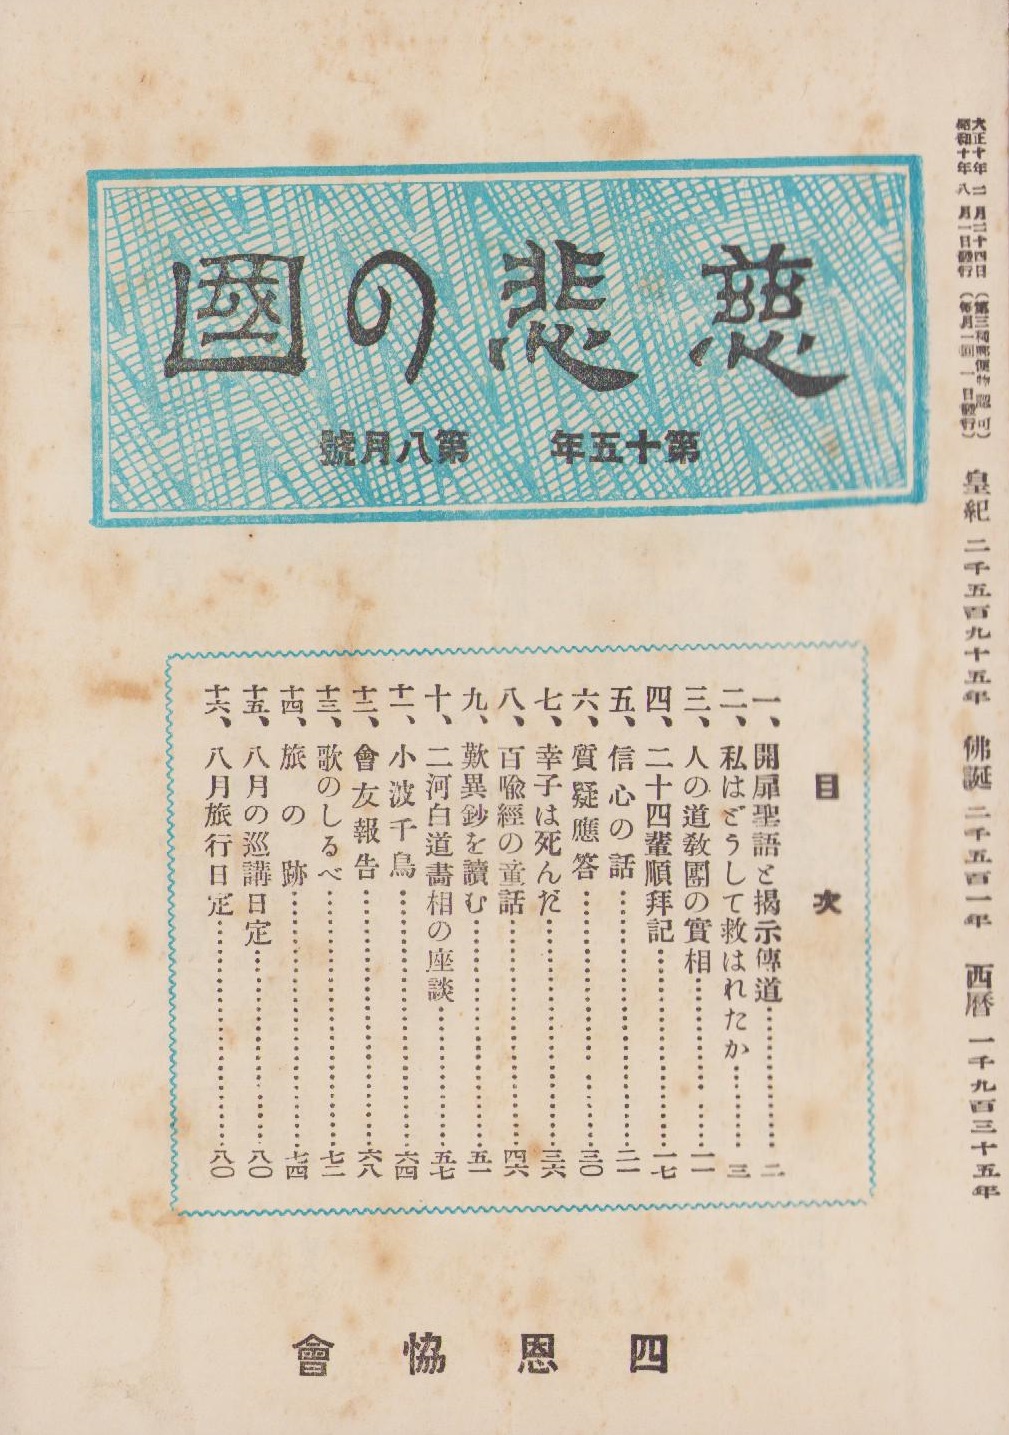 大正十年二月二十四日(第三種郵便物認可)
昭和十年八月一日發行(每月一回一日發行)
皇紀二千五百九十五年 佛誕二千五百一年 西曆一千九百三十五年
慈悲の國
第十五年 第八月號
目次
一、開扉聖語と揭示傳道…………二
二、私はどうして救はれたか…………三
三、人の道敎團の實相…………一一
四、二十四輩順拜記…………一七
五、信心の話…………二一
六、質疑應答…………三〇
七、幸子は死んだ…………三六
八、百喩經の童話…………四六
九、歎異鈔を讀む…………五一
十、二河白道畵相の座談…………五七
十一、小波千鳥…………六四
十二、會友報告…………六八
十三、歌のしるべ…………七二
十四、旅の跡…………七四
十五、八月の巡講日定…………八〇
十六、八月旅行日定…………八〇
四恩協會